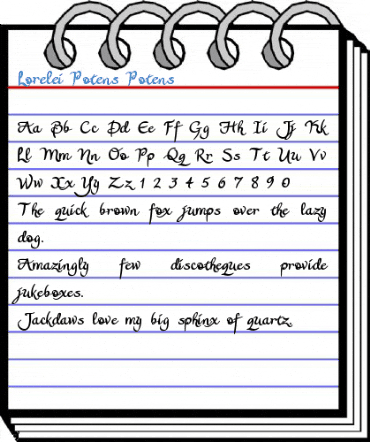 Lorelei Potens Potens
Aa Bb Cc Dd Ee Ff Gg Hh Ii Jj Kk
Ll Mm Nn Oo Pp Qq Rr Ss Tt Uu Vv
Ww Xx Yy Zz 1 2 3 4 5 6 7 8 9 0
The quick brown fox jumps over the lazy
dog.
Amazingly few discotheques provide
jukeboxes.
Jackdaws love my big sphinx of quartz.